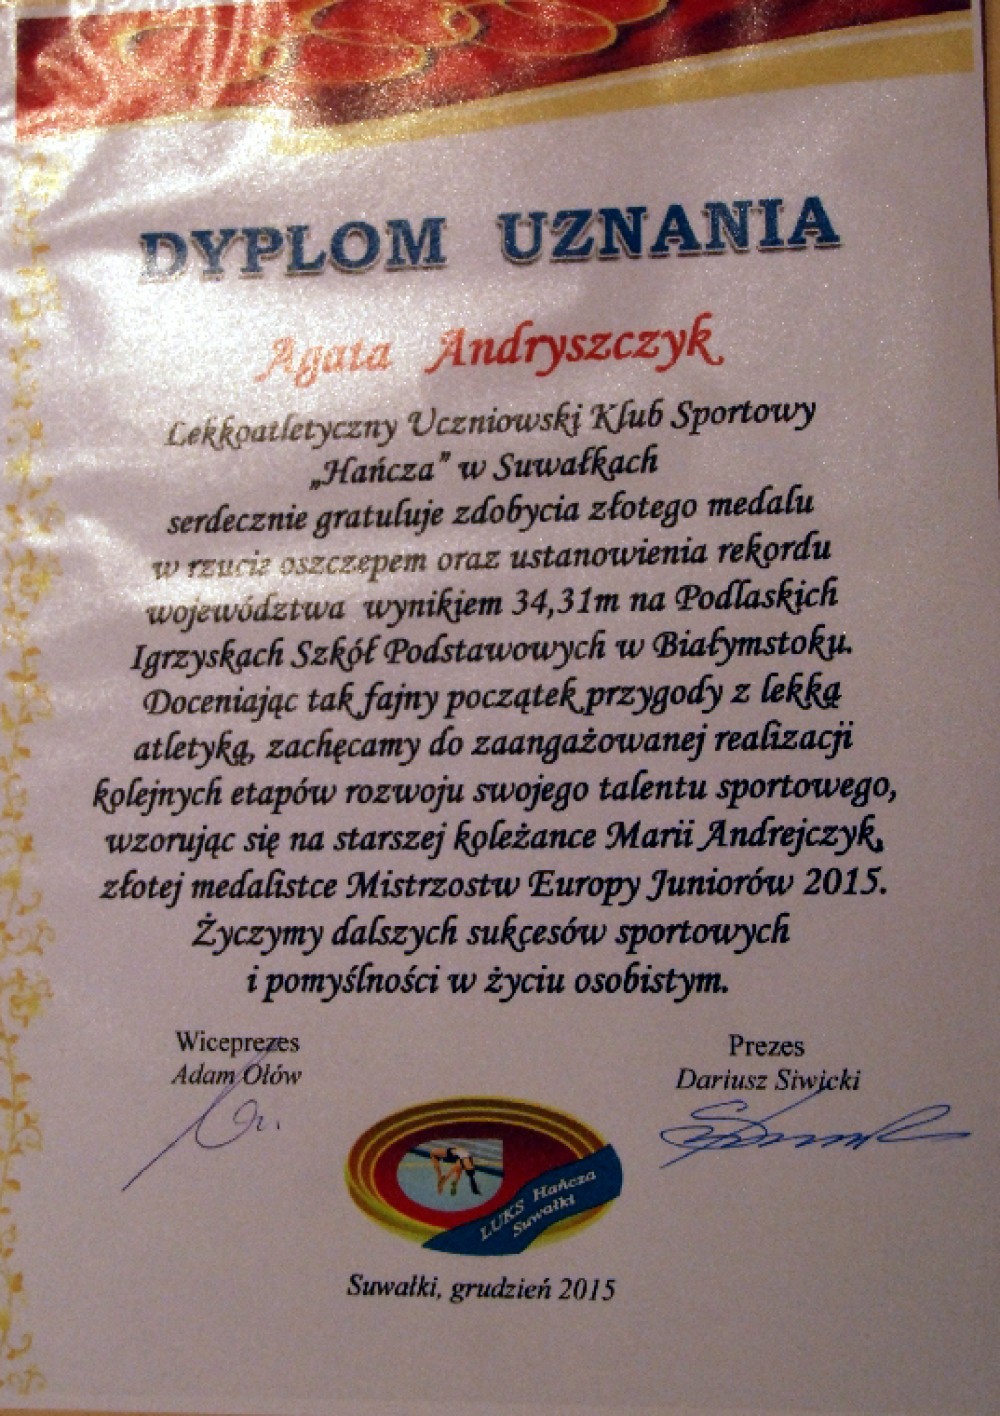 DYPLOM UZNANIA
Agata Andryszczyk
Lekkoatletyczny Uczniowski Klub Sportowy
„Hańcza” w Suwałkach
serdecznie gratuluje zdobycia złotego medalu
w rzucie oszczepem oraz ustanowienia rekordu
województwa wynikiem 34,31m na Podlaskich
Igrzyskach Szkół Podstawowych w Białymstoku.
Doceniając tak fajny początek przygody z lekką
atletyką, zachęcamy do zaangażowanej realizacji
kolejnych etapów rozwoju swojego talentu sportowego,
wzorując się na starszej koleżance Marii Andrejczyk,
złotej medalistce Mistrzostw Europy Juniorów 2015.
Życzymy dalszych sukcesów sportowych
i pomyślności w życiu osobistym.
Wiceprezes
Adam Ołów
Prezes
Dariusz Siwicki
LUKS Hańcza
Suwałki
Suwałki, grudzień 2015